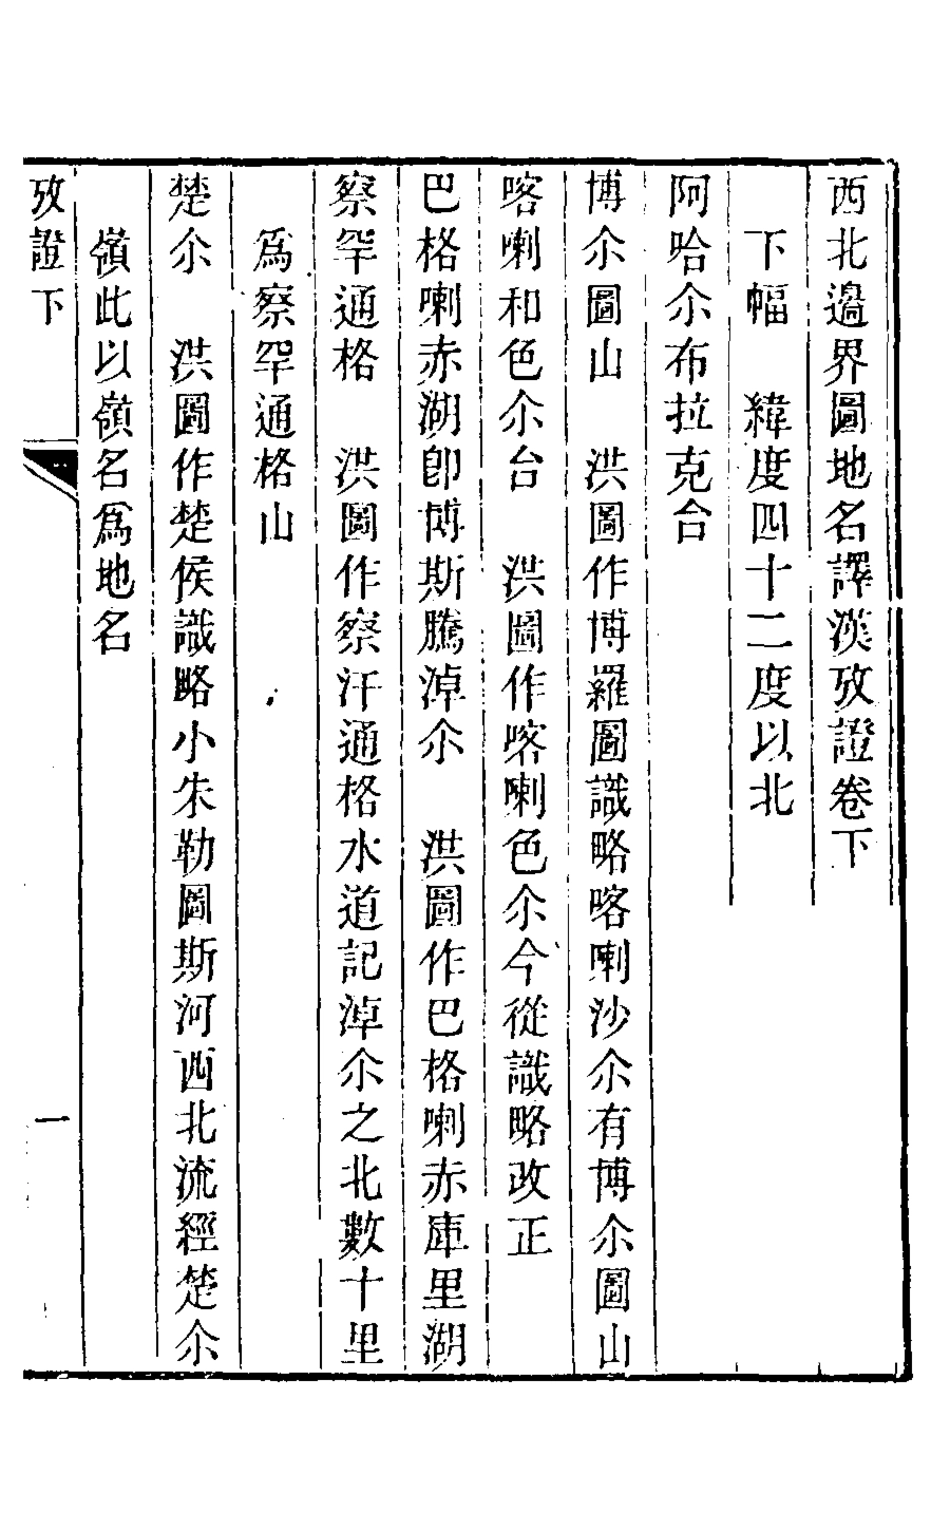 西北邊界圖地名譯漢攷證卷下
下幅　緯度四十二度以北
阿哈尒布拉克台
博尒圖山　洪圖作博羅圖識略喀喇沙尒有博尒圖山
喀喇和色尒台　洪圖作喀喇色尒今從識略改正
巴格喇赤湖卽博斯騰淖尒　洪圖作巴格喇赤庫里湖
察罕通格　洪圖作察汗通格水道記淖尒之北數十里
爲察罕通格山
楚尒　洪圖作楚侯識略小朱勒圖斯河西北流經楚尒
嶺此以嶺名爲地名
攷證下
一